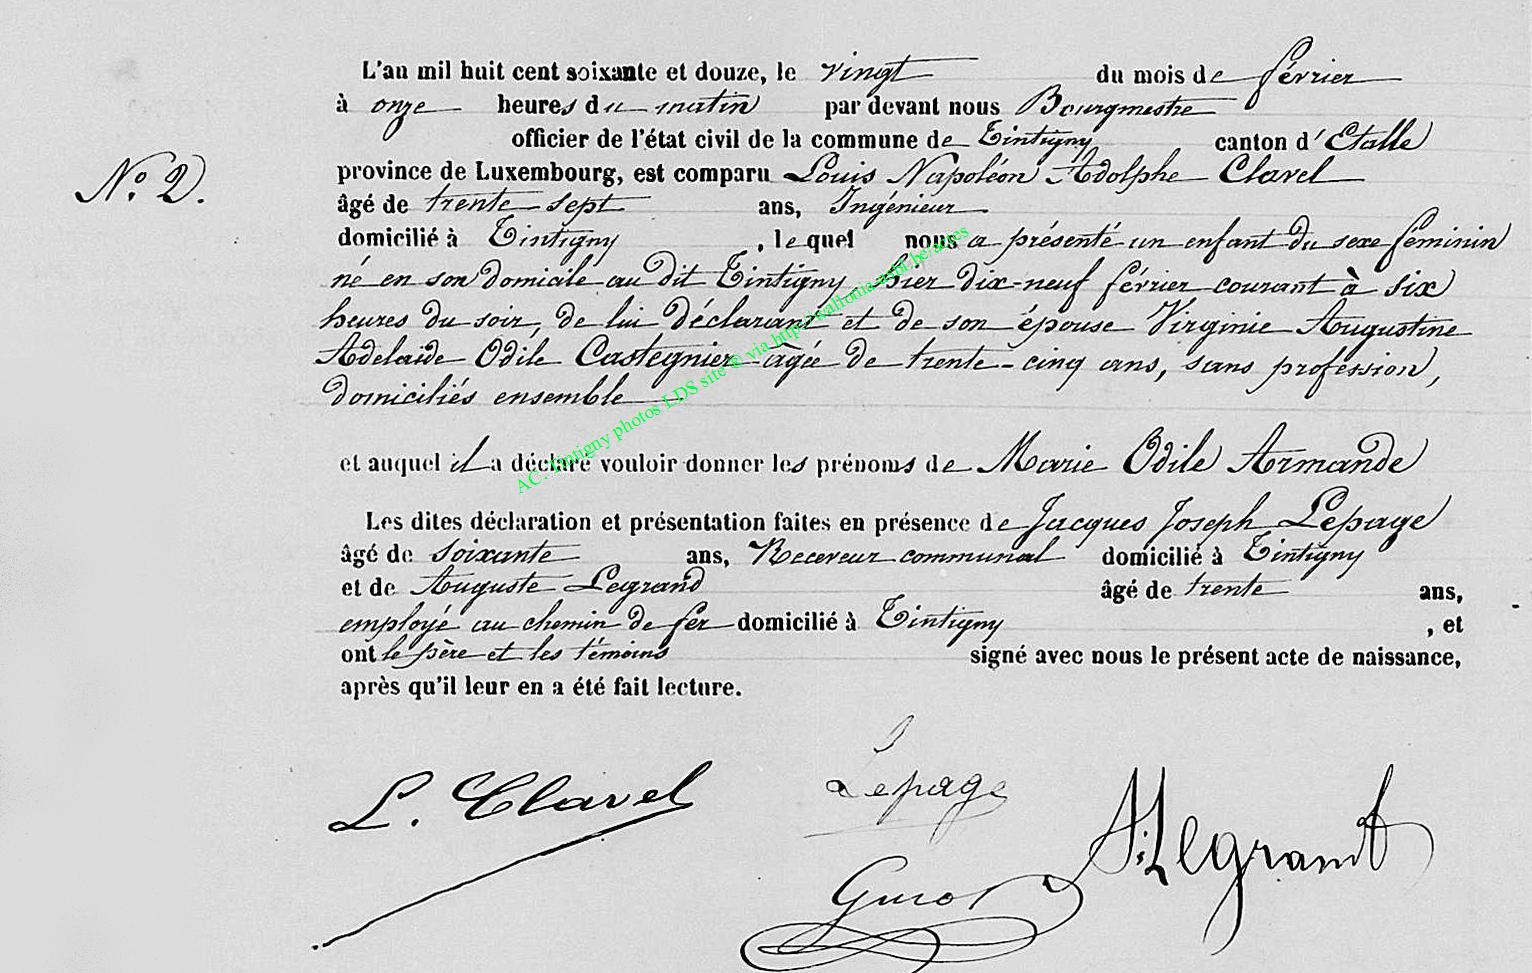 L'an mil huit cent soixante et douze, le vingt du mois de février
à onze heures du matin par devant nous Bourgmestre
officier de l'état civil de la commune de Tintigny canton d'Etalle
N.º 2.
province de Luxembourg, est comparu Louis Napoléon Adolphe Clavel
âgé de trente sept ans, Ingénieur
domicilié à Tintigny, lequel nous a présenté un enfant du sexe féminin
né en son domicile au dit Tintigny hier dix-neuf février courant à six
heures du soir, de lui déclarant et de son épouse Virginie Augustine
Adelaïde Odile Castegnier âgée de trente-cinq ans, sans profession,
domiciliés ensemble
AC. Tintigny photos LDS site © via http://wallonia-asbl.be/actes
et auquel il a déclaré vouloir donner les prénoms de Marie Odile Armande
Les dites déclaration et présentation faites en présence de Jacques Joseph Lepage
âgé de soixante ans, Receveur communal domicilié à Tintigny
et de Auguste Legrand âgé de trente ans,
employé au chemin de fer domicilié à Tintigny, et
ont le père et les témoins signé avec nous le présent acte de naissance,
après qu'il leur en a été fait lecture.
L. Clavel
J Lepage
A. Legrand